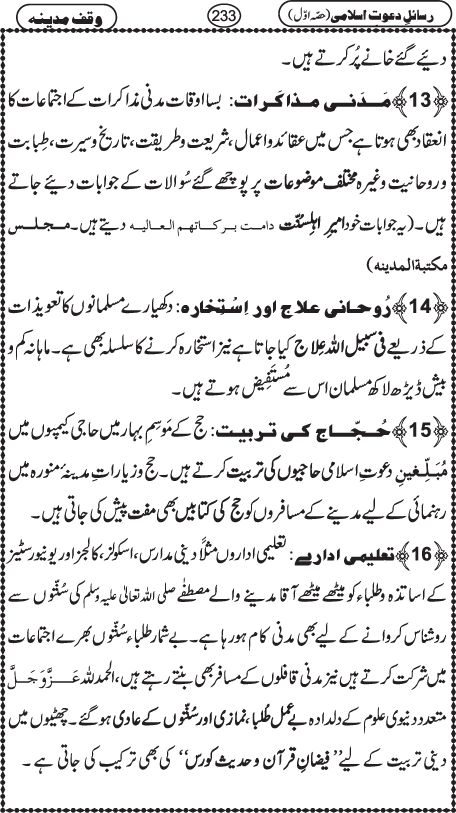 رسائلِ دعوت اسلامی (حصّہ اوّل)
233
وقف مدینہ
دیئے گئے خانے پُر کرتے ہیں۔
﴿13﴾ مَدَنی مذاکرات: بسا اوقات مدنی مذاکرات کے اجتماعات کا
انعقاد بھی ہوتا ہے جس میں عقائد و اعمال، شریعت و طریقت، تاریخ و سیرت، طِبابت
و روحانیت وغیرہ مختلف موضوعات پر پوچھے گئے سُوالات کے جوابات دیئے جاتے
ہیں۔ (یہ جوابات خود امیرِ اہلسنّت دامت برکاتہم العالیہ دیتے ہیں۔ مجلس
مکتبۃ المدینہ)
﴿14﴾ رُوحانی علاج اور اِسْتِخارہ: دکھیارے مسلمانوں کا تعویذات
کے ذریعے فی سبیل اللہ عِلاج کیا جاتا ہے نیز استخارہ کرنے کا سلسلہ بھی ہے۔ ماہانہ کم و
بیش ڈیڑھ لاکھ مسلمان اس سے مُسْتَفِیض ہوتے ہیں۔
﴿15﴾ حُجّاج کی تربیت: حج کے مَوسِمِ بہار میں حاجی کیمپوں میں
مُبَلِّغینِ دعوتِ اسلامی حاجیوں کی تربیت کرتے ہیں۔ حج و زیارتِ مدینۂ منورہ میں
رہنمائی کے لیے مدینے کے مسافروں کو حج کی کتابیں بھی مفت پیش کی جاتی ہیں۔
﴿16﴾ تعلیمی ادارے: تعلیمی اداروں مثلاً دینی مدارس، اسکولز، کالجز اور یونیورسٹیز
کے اساتذہ و طلباء کو میٹھے میٹھے آقا مدینے والے مصطفےٰ صلی اللہ تعالیٰ علیہ وسلم کی سُنّتوں سے
روشناس کروانے کے لیے بھی مدنی کام ہو رہا ہے۔ بے شمار طلباء سُنّتوں بھرے اجتماعات
میں شرکت کرتے ہیں نیز مدنی قافلوں کے مسافر بھی بنتے رہتے ہیں، الحمدللہ عَزَّوَجَلَّ
متعدد دنیوی علوم کے دلدادہ بے عمل طُلَبا، نمازی اور سُنّتوں کے عادی ہو گئے۔ چھٹیوں میں
دینی تربیت کے لیے ’’فیضانِ قرآن و حدیث کورس‘‘ کی بھی ترکیب کی جاتی ہے۔